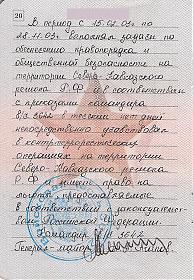 20
В период с 15.02.03г. по
28.11.03г. выполнял задачи по
обеспечению правопорядка и
общественной безопасности на
территории Северо-Кавказского
региона Р.Ф. в соответствии
с приказами командира
в/ч 3642 в течении нет дней
непосредственно участвовал
в контртеррористических
операциях на территории
Северо-Кавказского региона
Р.Ф. имеет право на
льготы предоставляемые
в соответствии законодательст-
вом Российской Федерации.
Командир
Генерал-майор